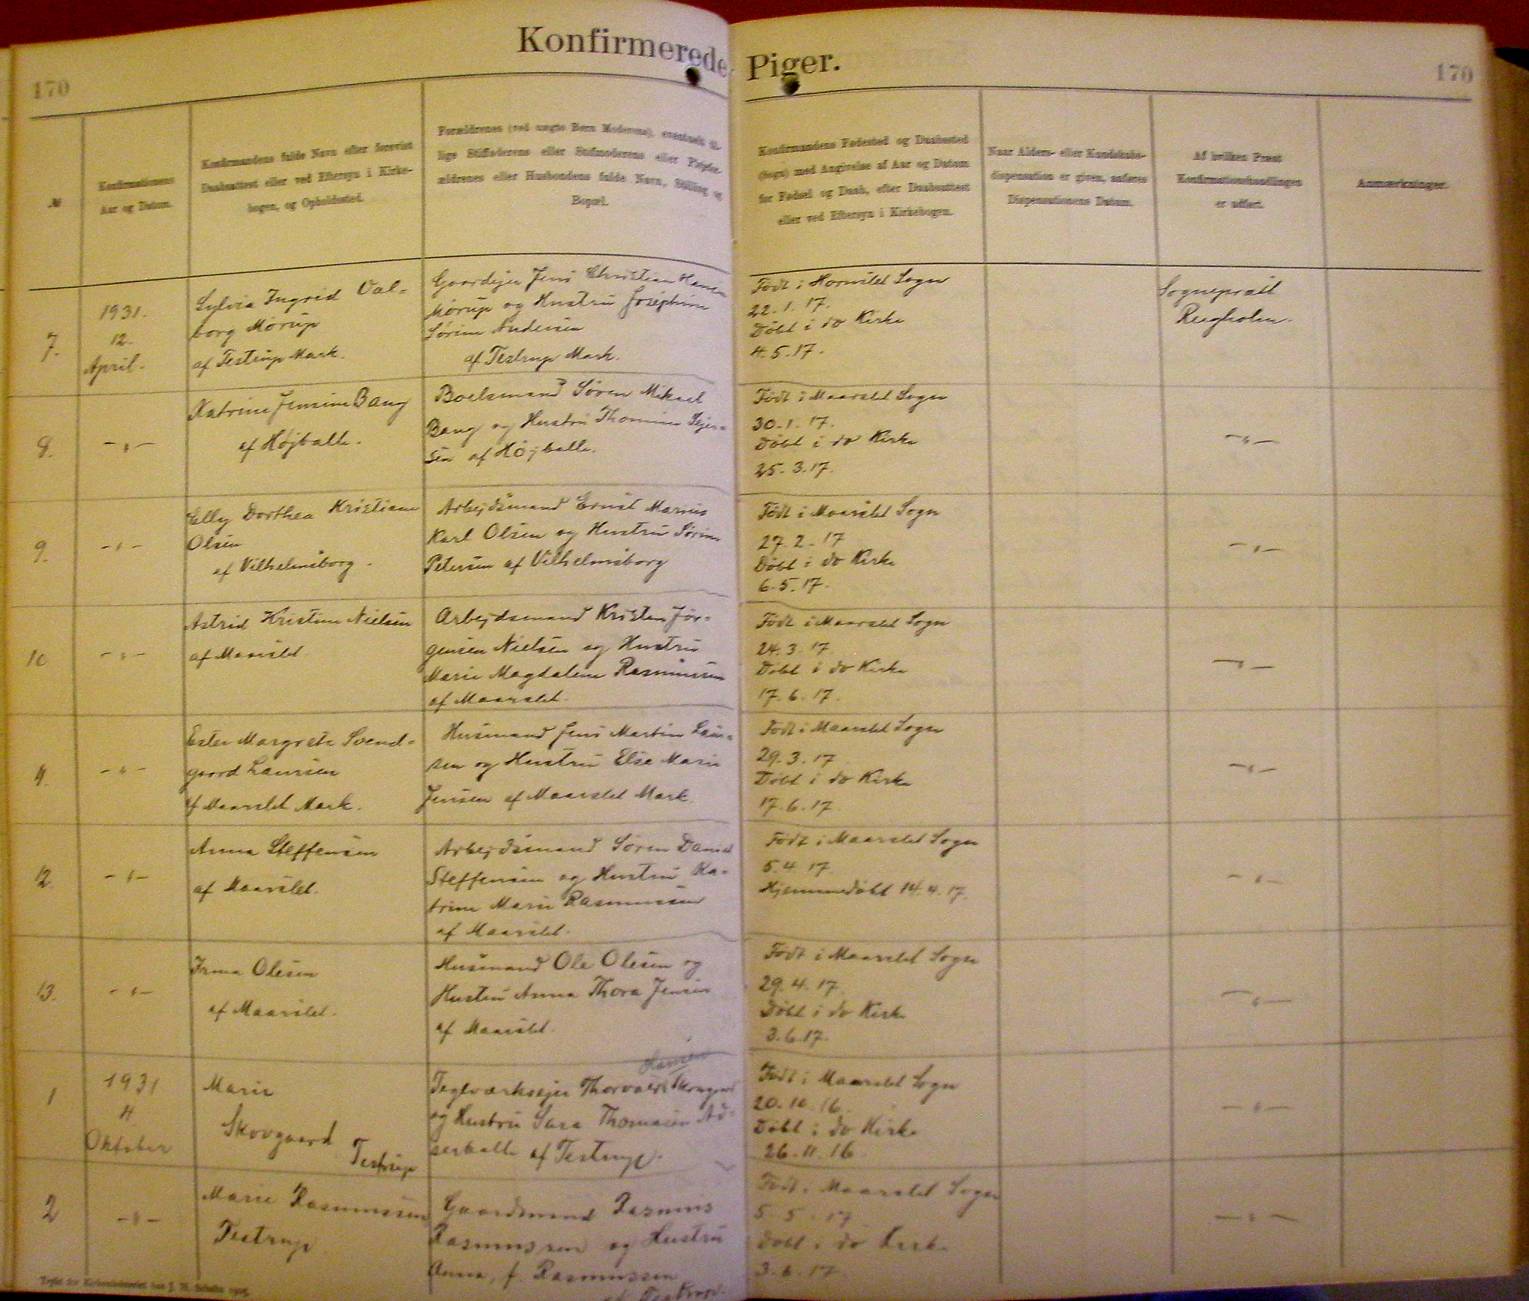 Konfirmerede Piger.
170
170
№
Konfirmationens
Aar og Datum.
Konfirmandens fulde Navn efter forevist
Daabsattest eller ved Eftersyn i Kirke-
bogen, og Opholdssted.
Forældrenes (ved uægte Børn Moderens), eventuelt til-
lige Stiffaderens eller Stifmoderens eller Plejefor-
ældrenes eller Husbondens fulde Navn, Stilling og
Bopæl.
Konfirmandens Fødested og Daabssted
(Sogn) med Angivelse af Aar og Datum
for Fødsel og Daab, efter Daabsattest
eller ved Eftersyn i Kirkebogen.
Naar Alders- eller Kundskabs-
dispensation er given, anføres
Dispensationens Datum.
Af hvilken Præst
Konfirmationshandlingen
er udført.
Anmærkninger.
7.
1931.
12.
April.
Sylvia Ingrid Val-
borg Mørup
af Testrup Mark.
Gaardejer Jens Christian Hansen
Mørup og Hustru Josephine
Sørine Andersen
af Testrup Mark.
Født i Hornslet Sogn
22.1.17.
Døbt i do Kirke
4.5.17.
Sognepræst
8.
-"-
Katrine Jensine Bang
af Højballe.
Boelsmand Søren Mikael
Bang og Hustru Thomine Sejer-
sen af Højballe.
Født i Maarslet Sogn
30.1.17.
Døbt i do Kirke
25.3.17.
-"-
9.
-"-
Elly Dorthea Kristiane
Olsen
af Vilhelmsborg.
Arbejdsmand Ernst Marius
Karl Olsen og Hustru Sørine
Petersen af Vilhelmsborg
Født i Maarslet Sogn
27.2.17
Døbt i do Kirke
6.5.17.
-"-
10
-"-
Astrid Kristine Nielsen
af Maarslet.
Arbejdsmand Kristen Jør-
gensen Nielsen og Hustru
Marie Magdalene Rasmussen
af Maarslet.
Født i Maarslet Sogn
24.3.17.
Døbt i do Kirke
17.6.17.
-"-
11.
-"-
Ester Margrete Svend-
gaard Laursen
af Maarslet Mark.
Husmand Jens Martin Laur-
sen og Hustru Else Marie
Jensen af Maarslet Mark.
Født i Maarslet Sogn
29.3.17
Døbt i do Kirke
17.6.17.
-"-
12.
-"-
Anna Steffensen
af Maarslet.
Arbejdsmand Søren Daniel
Steffensen og Hustru Ka-
trine Marie Rasmussen
af Maarslet.
Født i Maarslet Sogn
5.4.17.
Hjemmedøbt 14.4.17.
-"-
13.
-"-
Irma Olesen
af Maarslet.
Husmand Ole Olesen og
Hustru Anna Thora Jensen
af Maarslet.
Født i Maarslet Sogn
29.4.17.
Døbt i do Kirke
3.6.17.
-"-
1
1931
4
Oktober
Marie
Skovgaard
Testrup
Hansen
Teglværksejer Thorvald Skovgaard
og Hustru Sara Thomasen Ad-
serballe af Testrup.
Født i Maarslet Sogn
20.10.16.
Døbt i do Kirke
26.11.16.
-"-
2
-"-
Marie Rasmussen
Testrup
Gaardmand Rasmus
Rasmussen og Hustru
Anna, f. Rasmussen
af Testrup.
Født i Maarslet Sogn
5.5.17
Døbt i do Kirke
3.6.17
-"-